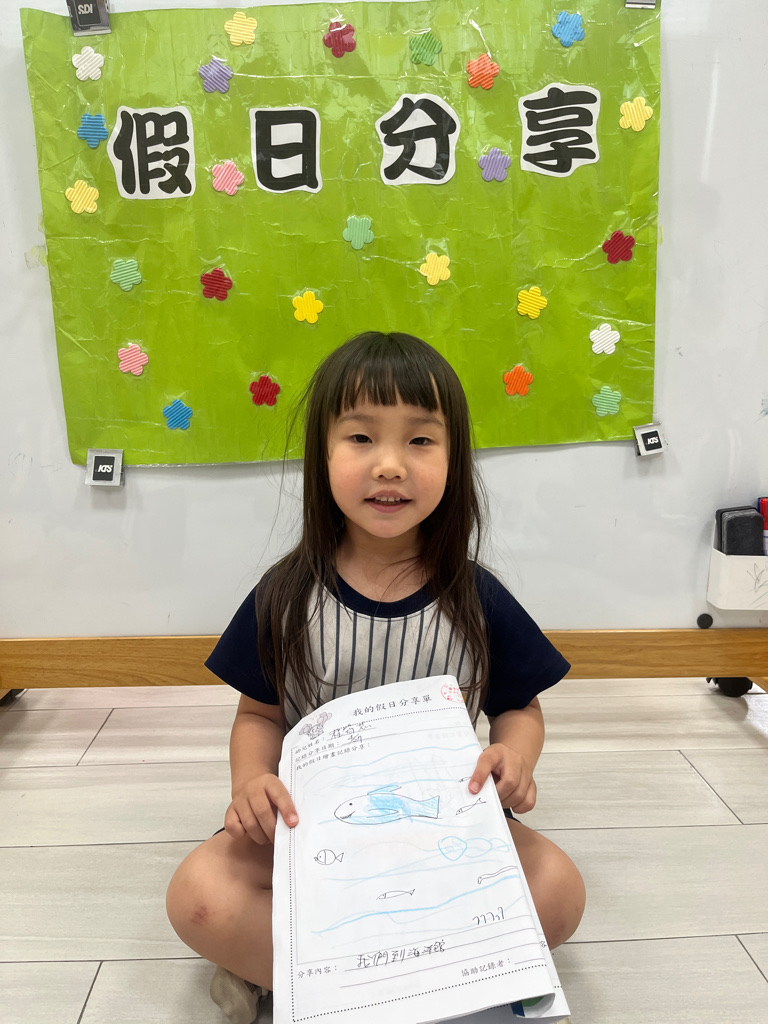 SDI
假日分享
KTS
KTS
我的假日分享單
幼兒姓名：
記錄分享日期：
我的假日繪畫記錄分享：
分享內容：我們到海洋館
協助記錄者：